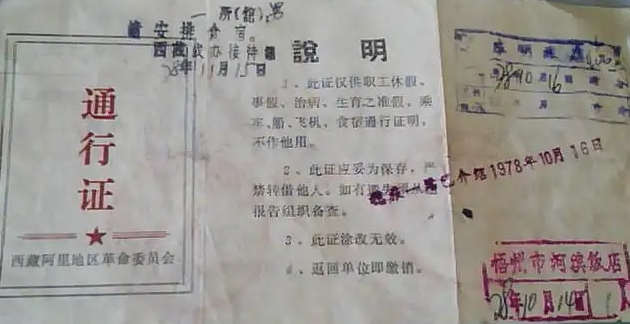 一所(館):男
請安排食宿。
西藏驻办接待
78年11月15日
通
行
证
西藏阿里地区革命委员会
說明
1、此证仅供职工休假、
事假、治病、生育之准假，乘
车、船、飞机、食宿通行证明，
不作他用。
2、此证应妥为保存，严
禁转借他人。如有遗失
报告组织备查。
3、此证涂改无效。
4、返回单位即缴销。
已介绍1978年10月16日
78 10月16
梧州市河滨饭店
78年10月14日